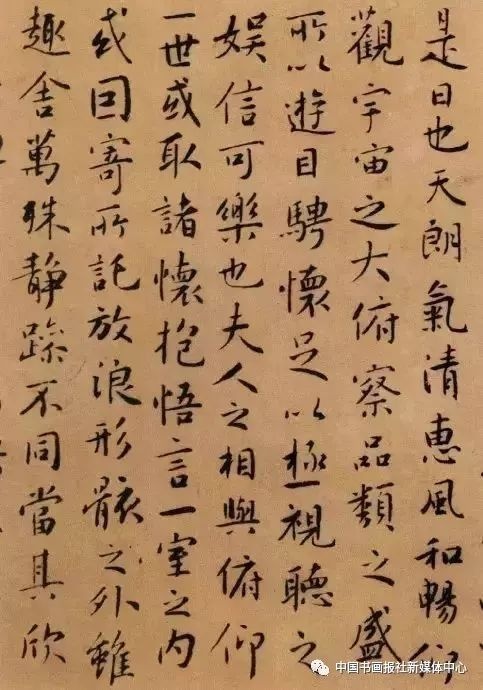 是日也天朗氣清惠風和暢仰
觀宇宙之大俯察品類之盛
所以遊目騁懷足以極視聽之
娛信可樂也夫人之相與俯仰
一世或取諸懷抱悟言一室之內
或因寄所託放浪形骸之外雖
趣舍萬殊靜躁不同當其欣
中国书画报社新媒体中心